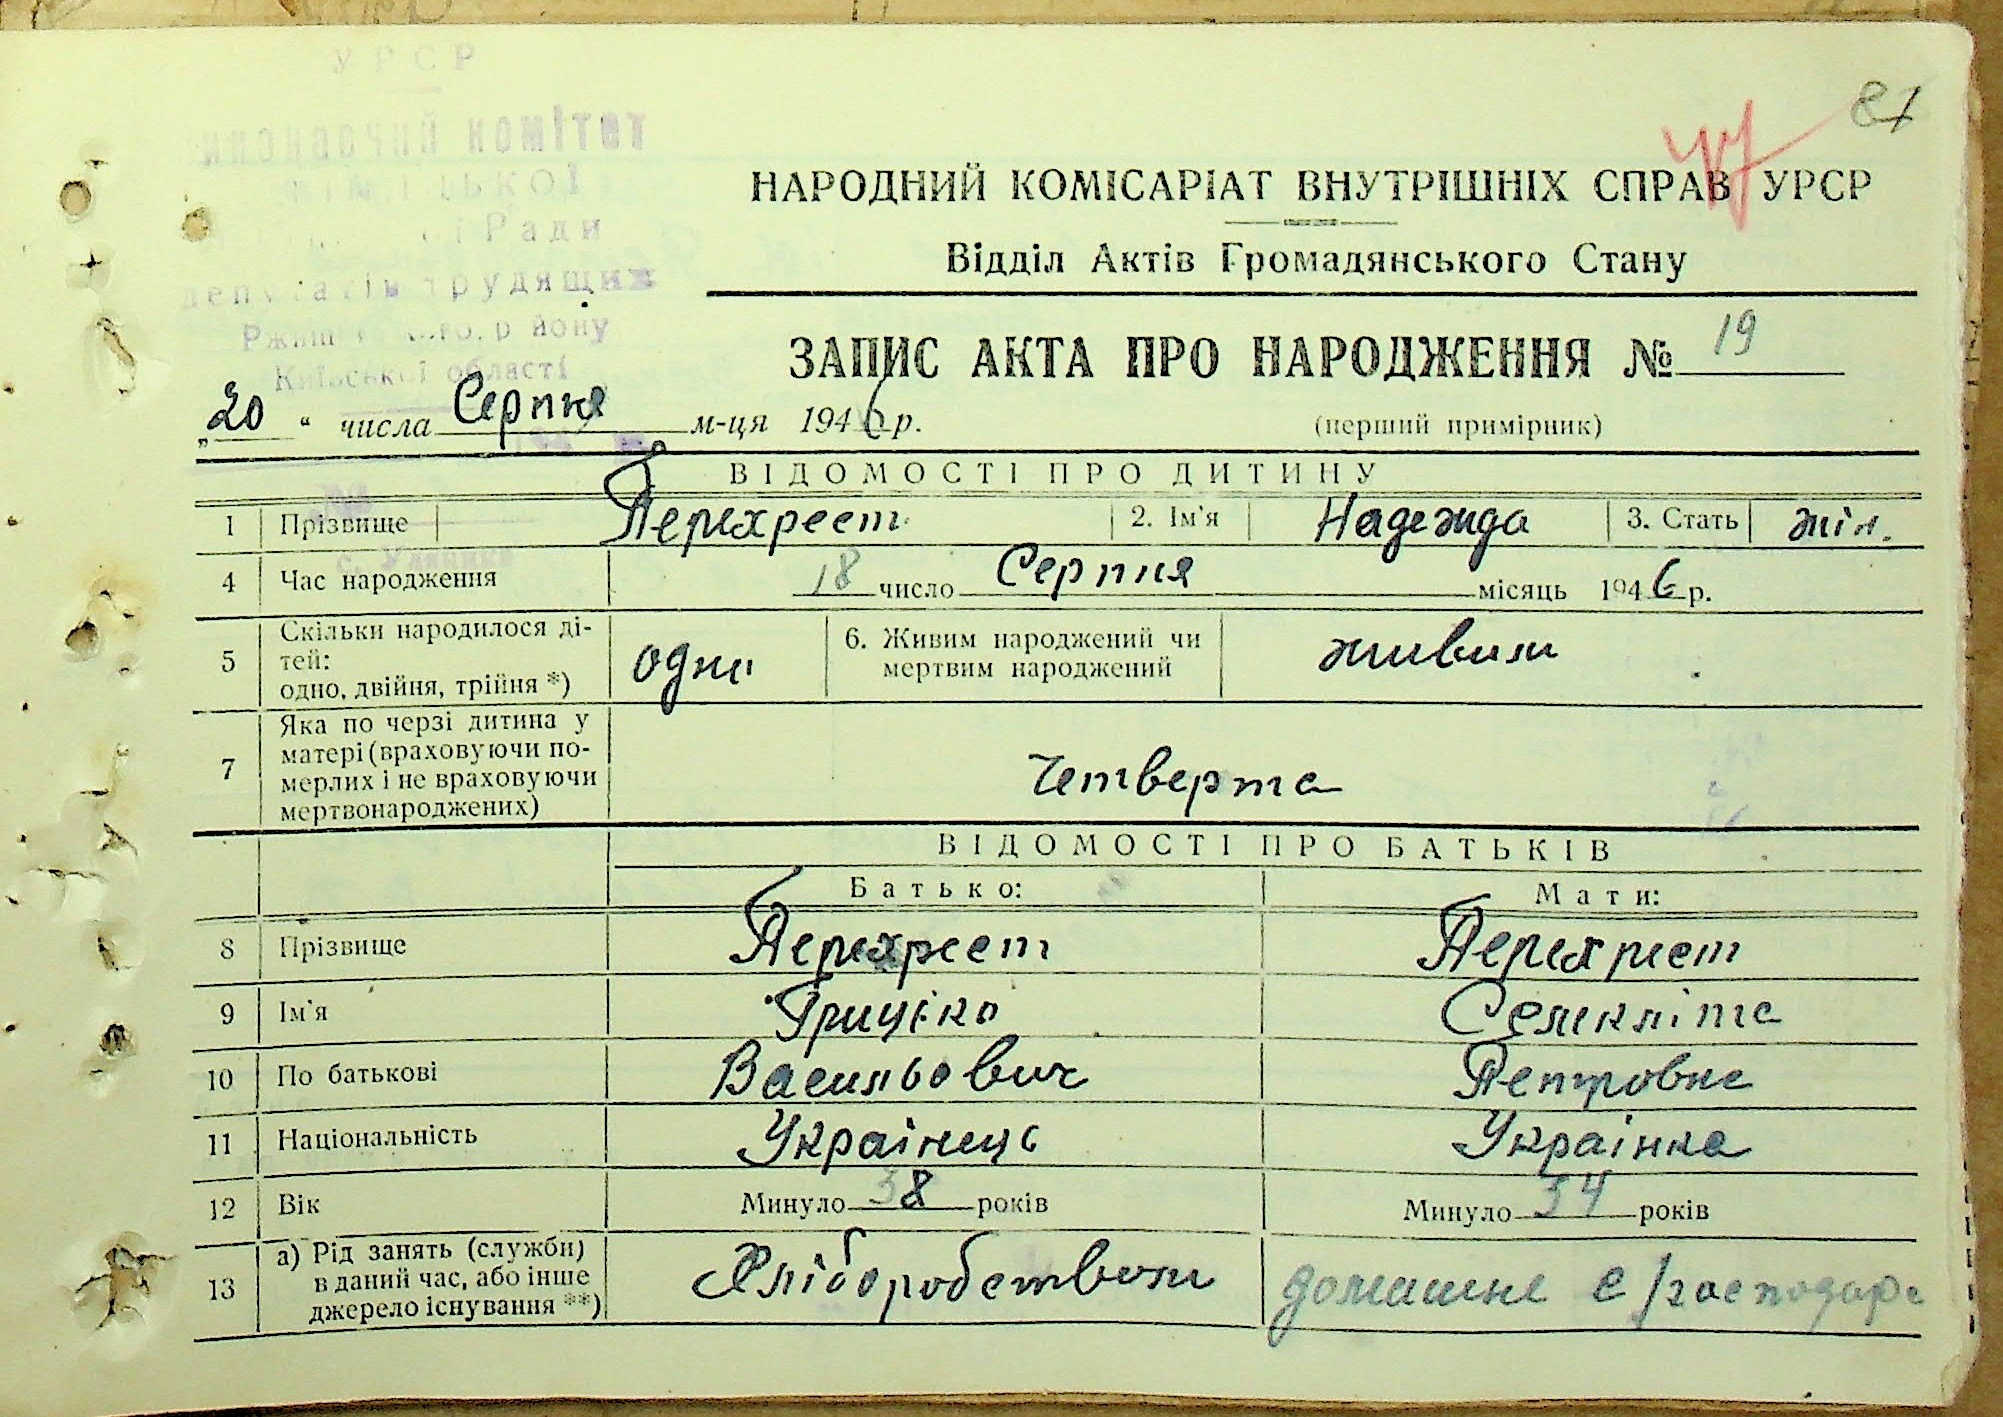 УРСР
комітет
Ради
депутатів трудящих
Київської області
81
НАРОДНИЙ КОМІСАРІАТ ВНУТРІШНІХ СПРАВ УРСР
Відділ Актів Громадянського Стану
ЗАПИС АКТА ПРО НАРОДЖЕННЯ № 19
„20“ числа Серпня м-ця 1946 р. (перший примірник)
ВІДОМОСТІ ПРО ДИТИНУ
1 Прізвище Перехрест 2. Ім'я Надежда 3. Стать жін.
4 Час народження 18 число Серпня місяць 1946 р.
5 Скільки народилося ді-
тей:
одно, двійня, трійня *) одни
6. Живим народжений чи
мертвим народжений живим
7 Яка по черзі дитина у
матері (враховуючи по-
мерлих і не враховуючи
мертвонароджених) Четверта
ВІДОМОСТІ ПРО БАТЬКІВ
Батько: Мати:
8 Прізвище Перехрест Перехрест
9 Ім'я Грицько
10 По батькові Васильович Петровна
11 Національність Українець Українка
12 Вік Минуло 38 років Минуло 34 років
13 а) Рід занять (служби)
в даний час, або інше
джерело існування **) Хліборобством домашне с/господар